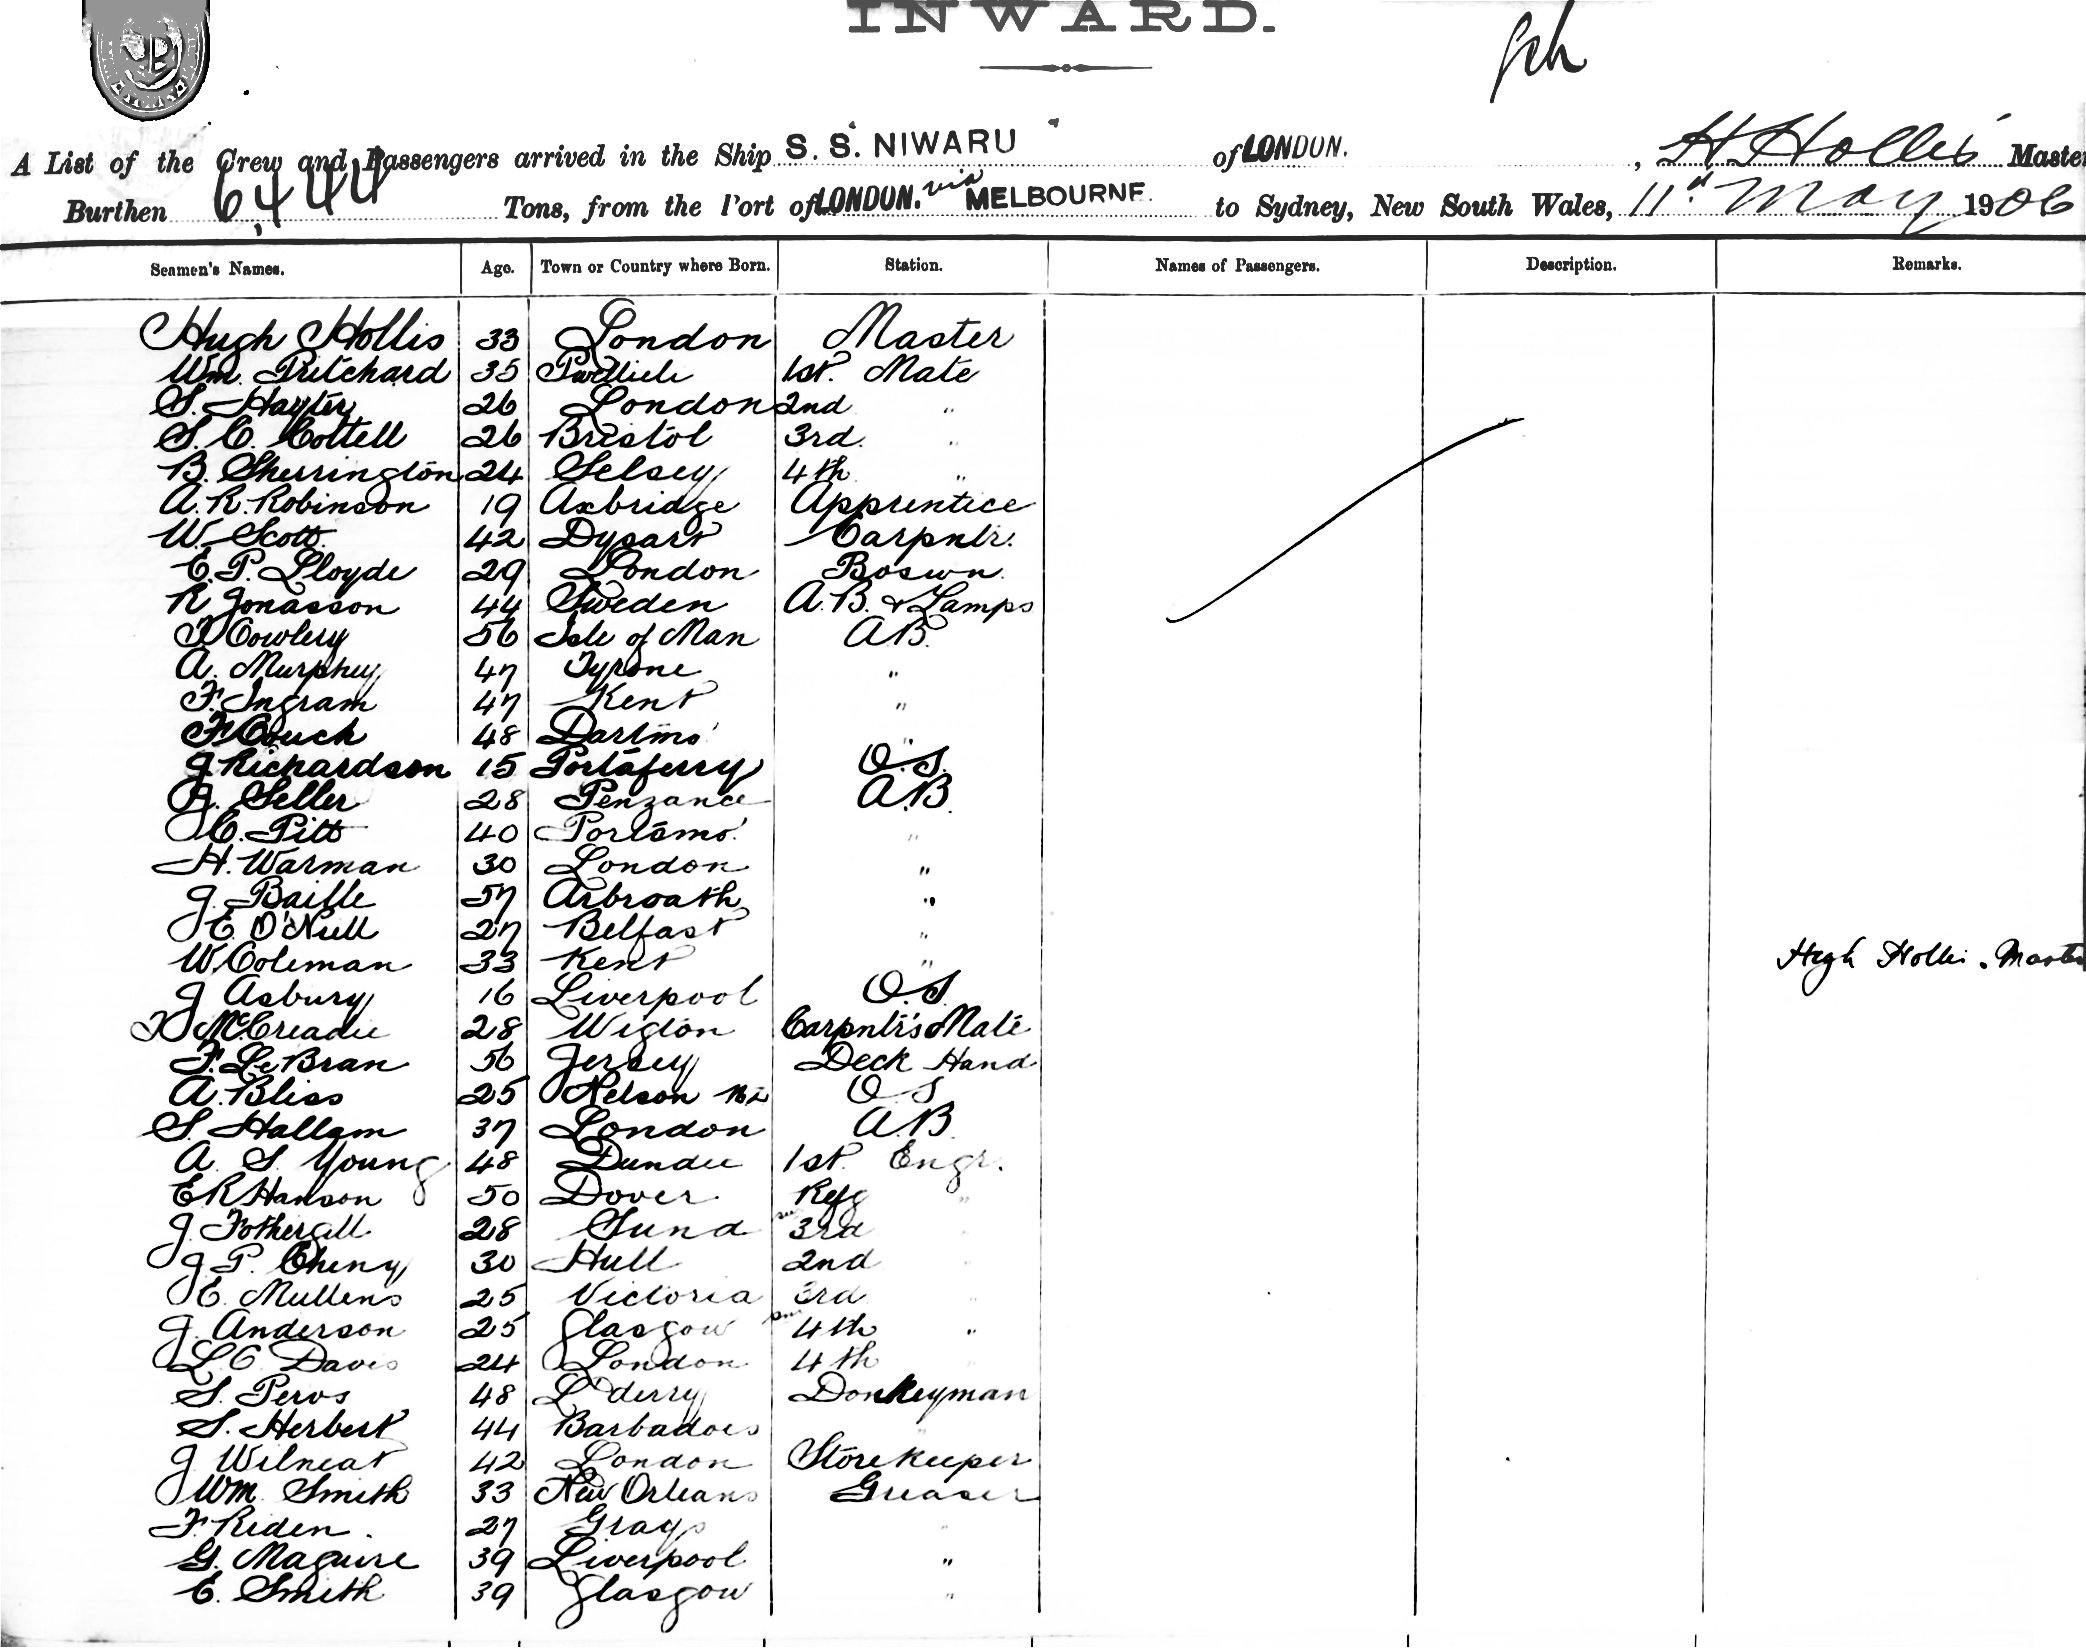 INWARD.
A List of the Crew and Passengers arrived in the Ship S. S. NIWARU of LONDON. , H. Hollis Master
Burthen 6,444 Tons, from the Port of LONDON. via MELBOURNE. to Sydney, New South Wales, 11th May 1906
Seamen's Names. Age. Town or Country where Born. Station. Names of Passengers. Description. Remarks.
Hugh Hollis 33 London Master
Wm. Pritchard 35 Pwllheli 1st. Mate
S. Hayter 26 London 2nd "
S. C. Cottell 26 Bristol 3rd. "
B. Sherrington 24 Selsey 4th "
A. R. Robinson 19 Axbridge Apprentice
W. Scott 42 Dysart Carpntr.
E. P. Lloyde 29 London Boswn.
R Jonasson 44 Sweden A.B. & Lamps
T Cowley 56 Isle of Man A.B.
A. Murphy 47 Tyrone "
F. Ingram 47 Kent "
F. Couch 48 Dartmo' "
J. Richardson 15 Portaferry O.S.
A. Seller 28 Penzance A.B.
C. Pitt 40 Portsmo' "
H. Warman 30 London "
J. Baille 57 Arbroath "
E. O'Niell 27 Belfast "
W. Coleman 33 Kent "
Hugh Hollis. Master
J Asbury 16 Liverpool O.S.
T McCreadie 28 Wigton Carpntr's Mate
F. Le Bran 56 Jersey Deck Hand
A. Bliss 25 Nelson NZ O S
S. Hallam 37 London A.B.
A. S. Young 48 Dundee 1st. Engr.
E R Hanson 50 Dover Refg "
J. Fothergill 28 Sund 3rd
J. P. Cheny 30 Hull 2nd "
E. Mullens 25 Victoria 3rd "
J. Anderson 25 Glasgow 4th "
L C Davis 24 London 4th "
S. Peros 48 L'derry Donkeyman
S. Herbert 44 Barbadoes "
J Wilneat 42 London Storekeeper
Wm. Smith 33 New Orleans Greaser
F. Riden. 27 Grays "
G. Maguire 39 Liverpool "
E. Smith 39 Glasgow "